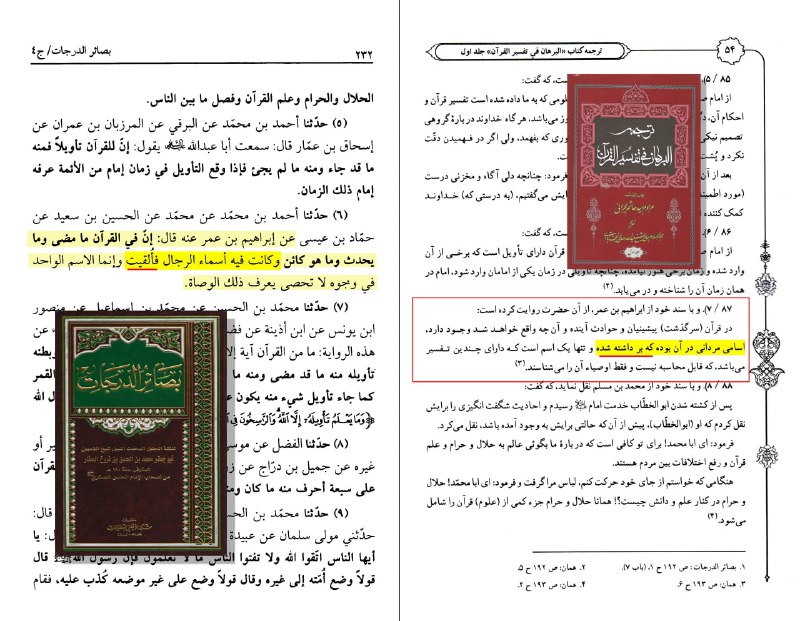 ٢٣٢
بصائر الدرجات/ ج٤
الحلال والحرام وعلم القرآن وفصل ما بين الناس.
(٥) حدّثنا أحمد بن محمّد عن البرقي عن المرزبان بن عمران عن
إسحاق بن عمّار قال: سمعت أبا عبدالله يقول: إنّ للقرآن تأويلاً فمنه
ما قد جاء ومنه ما لم يجئ فإذا وقع التأويل في زمان إمام من الأئمة عرفه
إمام ذلك الزمان.
(٦) حدّثنا أحمد بن محمّد عن محمّد عن الحسين بن سعيد عن
حمّاد بن عيسى عن إبراهيم بن عمر عنه قال: إنّ في القرآن ما مضى وما
يحدث وما هو كائن وكانت فيه أسماء الرجال فألقيت وإنما الاسم الواحد
في وجوه لا تحصى يعرف ذلك الوصاة.
(٧) حدّثنا محمّد بن الحسين عن محمّد بن إسماعيل عن منصور
ابن يونس عن ابن أذينة عن
هذه الرواية: ما من القرآن آية إلا
تأويله منه ما قد مضى ومنه ما
القمر
كما جاء تأويل شيء منه يكون
﴿وَمَا يَعْلَمُ تَأْوِيلَهُ إِلَّا اللَّهُ وَالرَّاسِخُونَ فِي
(٨) حدّثنا الفضل عن موسى
أو
غيره عن جميل بن درّاج عن
على سبعة أحرف منه ما كان
(٩) حدّثنا محمّد بن
قال:
حدّثني مولى سلمان عن عبيدة
يا
أيها الناس اتّقوا الله ولا تفتوا الناس ما لا تعلمون فإن رسول الله قال
قولاً وضع أمته إلى غيره وقال قولاً وضع على غير موضعه كُذب عليه، فقام
بصائر الدرجات
٥٤
ترجمه كتاب «البرهان في تفسير القرآن» جلد اول
٨٥ / ٥).
است، كه گفت:
از امام
لومى كه به ما داده شده است تفسير قرآن و
احكام آن،
مى‌باشد، هر گاه خداوند در بارهٔ گروهى
تصميم
ورى كه بفهمد، ولى اگر در فهميدن دقّت
نكرد و
بعد از آن
فرمود: چنانچه دلى آگاه و مخزنى درست
(مورد
مى‌گفتيم، (به درستى كه) خداوند
كمک كننده
٨٦ / ٦).
است، كه گفت:
از امام
قرآن داراى تأويل است كه برخى از آن
وارد شده و زمان برخى هنوز نيامده، چنانچه تأويلى در زمان يكى از امامان وارد شود، امام در
همان زمان آن را شناخته و در مى‌يابد.(٢)
٨٧ / ٧). و با سند خود از ابراهيم بن عمر، از آن حضرت روايت كرده است:
در قرآن (سرگذشت) پيشينيان و حوادث آينده و آن چه واقع خواهد شد وجود دارد،
اسامى مردانى در آن بوده كه بر داشته شده و تنها يک اسم است كه داراى چندين تفسير
مى‌باشد، كه قابل محاسبه نيست و فقط اوصياء آن را مى‌شناسند.(٣)
٨٨ / ٨). و با سند خود از محمد بن مسلم نقل نمايد، كه گفت:
پس از كشته شدن ابوالخطّاب خدمت امام رسيدم و احاديث شگفت انگيزى را برايش
نقل كردم كه او (ابوالخطّاب)، پيش از آن كه حالتى برايش به وجود آمده باشد، نقل مى‌كرد.
فرمود: اى ابا محمد! براى تو كافى است كه در بارهٔ ما بگوئى عالم به حلال و حرام و علم
قرآن و رفع اختلافات بين مردم هستند.
هنگامى كه خواستم از جاى خود حركت كنم، لباس مرا گرفت و فرمود: اى ابا محمّد! حلال
و حرام در كنار علم و دانش چيست؟! همانا حلال و حرام جزء كمى از (علوم) قرآن را شامل
مى‌شود.(٤)
١. بصائر الدرجات: ص ١٩٢ ح ١، (باب ٧).
٢. همان: ص ١٩٢ ح ٥.
٣. همان: ص ١٩٣ ح ٦.
٤. همان: ص ١٩٣ ح ٢.
ترجمه
البرهان فى تفسير القرآن